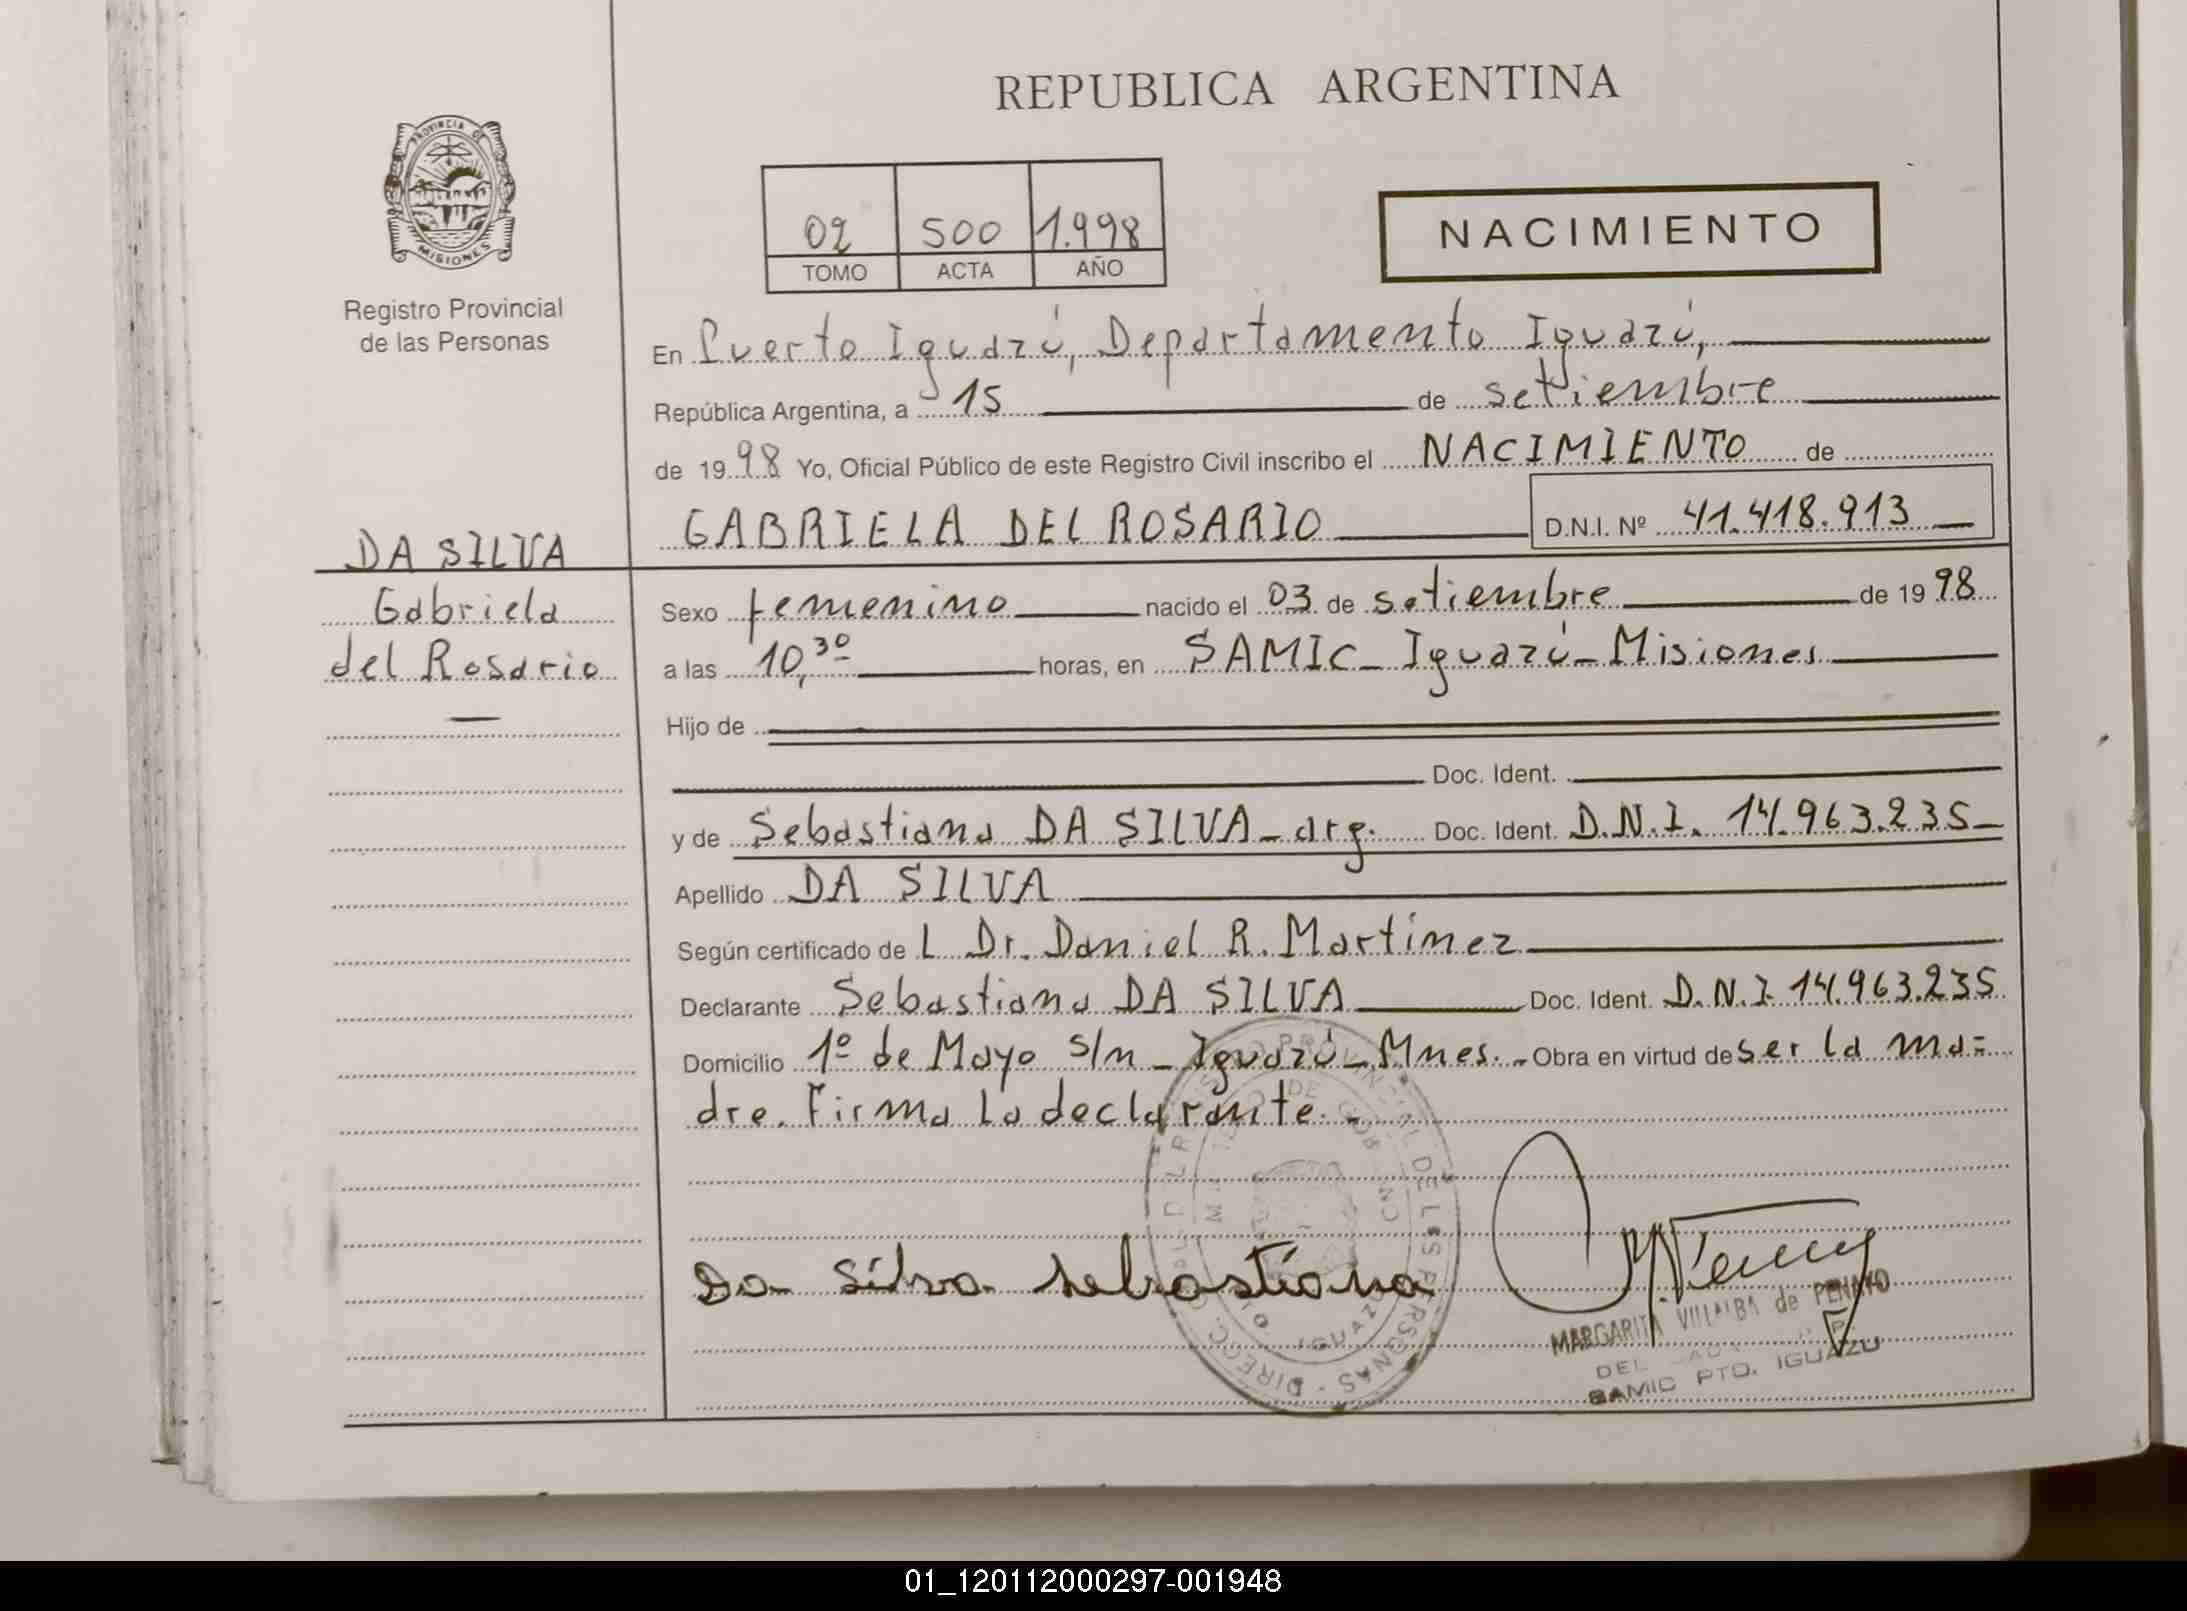 REPUBLICA ARGENTINA
PROVINCIA DE
MISIONES
Registro Provincial
de las Personas
02 500 1.998
TOMO ACTA AÑO
NACIMIENTO
En Puerto Iguazú, Departamento Iguazú,
República Argentina, a 15 de setiembre
de 1998 Yo, Oficial Público de este Registro Civil inscribo el NACIMIENTO de
GABRIELA DEL ROSARIO D.N.I. Nº 41.418.913
DA SILVA
Gabriela
del Rosario
Sexo femenino nacido el 03 de setiembre de 1998
a las 10,30 horas, en SAMIC - Iguazú - Misiones
Hijo de
Doc. Ident.
y de Sebastiana DA SILVA - arg. Doc. Ident. D.N.I. 14.963.235
Apellido DA SILVA
Según certificado de L Dr. Daniel R. Martínez
Declarante Sebastiana DA SILVA Doc. Ident. D.N.I 14.963.235
Domicilio 1º de Mayo s/n - Iguazú - Mnes. - Obra en virtud de ser la ma=
dre. Firma la declarante. -
Da Silva Sebastiana
MARGARITA VILLALBA de PENAYO
DEL
SAMIC PTO. IGUAZU
01_120112000297-001948